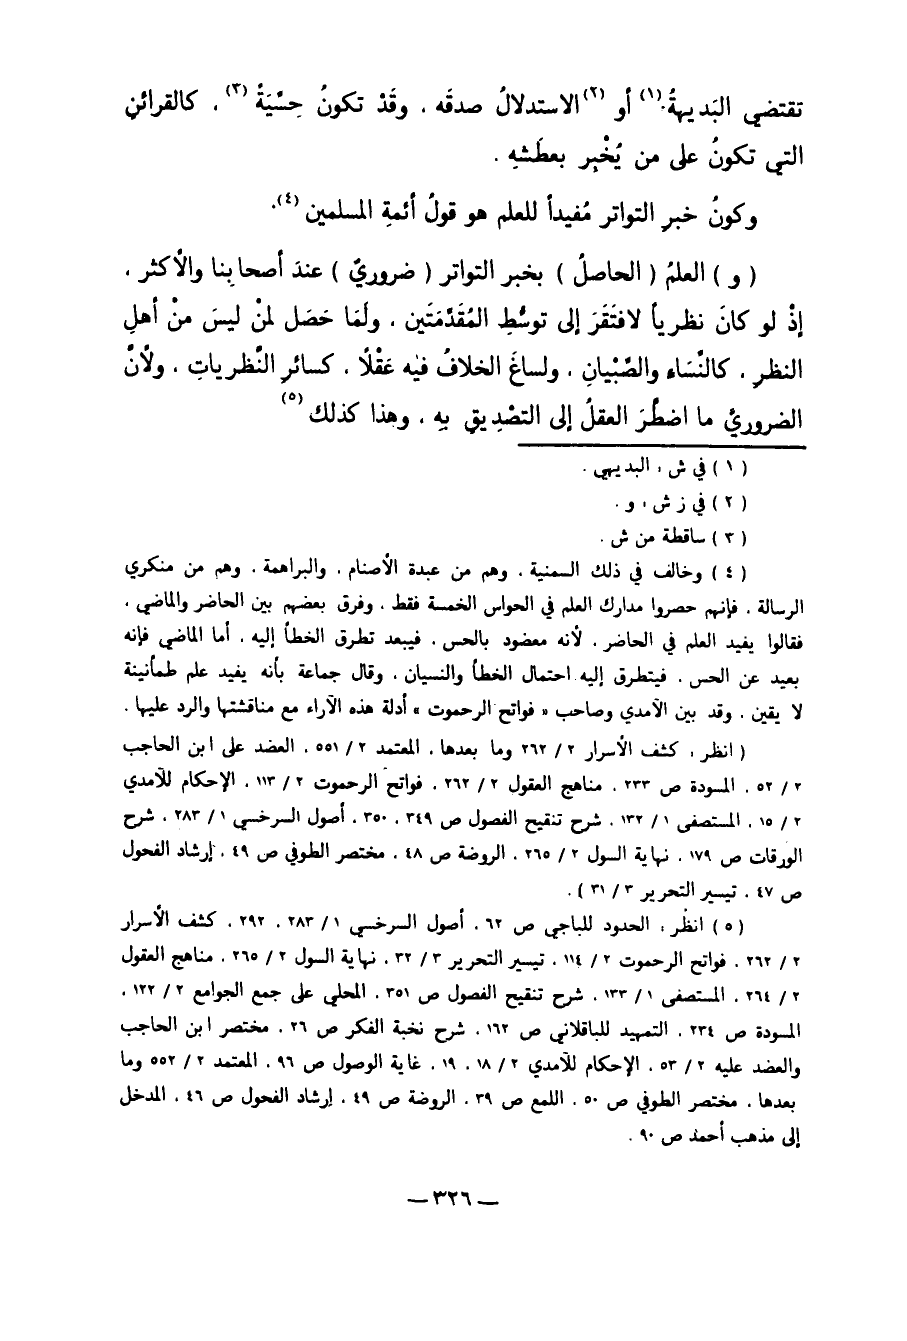 تقتضي البَديهةُ(١) أو (٢) الاستدلالُ صدقَه ، وقَدْ تكونُ حِسَّيَةً (٣) ، كالقرائنِ
التي تكونُ على من يُخْبِر بعطَشهِ .
وكونُ خبرِ التواتر مُفيداً للعلم هو قولُ أئمةِ المسلمين (٤).
( و ) العلمُ ( الحاصلُ ) بخبر التواتر ( ضروريٌ ) عندَ أصحابنا والأكثر ،
إذْ لو كانَ نظرياً لافتَقَرَ إلى توسُّطِ المُقَدّمَتَين ، ولَمَا حَصَل لمنْ ليسَ منْ أهلِ
النظرِ ، كالنَّسَاء والصَّبْيانِ ، ولساغَ الخلافُ فيْه عَقْلاً ، كسائرِ النَّظرياتِ ، ولأنَّ
الضروريَّ ما اضطُرَ العقلُ إلى التصْدِيق بِهِ ، وهذا كذلك (٥)
( ١ ) في ش ، البديهي .
( ٢ ) في ز ش ، و .
( ٣ ) ساقطة من ش .
( ٤ ) وخالف في ذلك السمنية ، وهم من عبدة الأصنام ، والبراهمة ، وهم من منكري
الرسالة ، فإنهم حصروا مدارك العلم في الحواس الخمسة فقط ، وفرق بعضهم بين الحاضر والماضي ،
فقالوا يفيد العلم في الحاضر ، لأنه معضود بالحس ، فيبعد تطرق الخطأ إليه ، أما الماضي فإنه
بعيد عن الحس ، فيتطرق إليه احتمال الخطأ والنسيان ، وقال جماعة بأنه يفيد علم طمأنينة
لا يقين ، وقد بين الآمدي وصاحب « فواتح الرحموت » أدلة هذه الآراء مع مناقشتها والرد عليها .
( انظر ، كشف الأسرار ٢ / ٢٦٢ وما بعدها ، المعتمد ٢ / ٥٥١ ، العضد على ابن الحاجب
٢ / ٥٢ ، المسودة ص ٢٣٣ ، مناهج العقول ٢ / ٢٦٢ ، فواتح الرحموت ٢ / ١١٣ ، الإحكام للآمدي
٢ / ١٥ ، المستصفى ١ / ١٣٢ ، شرح تنقيح الفصول ص ٣٤٩ ، ٣٥٠ ، أصول السرخسي ١ / ٢٨٣ ، شرح
الورقات ص ١٧٩ ، نهاية السول ٢ / ٢٦٥ ، الروضة ص ٤٨ ، مختصر الطوفي ص ٤٩ ، إرشاد الفحول
ص ٤٧ ، تيسير التحرير ٣ / ٣١ ) .
( ٥ ) انظر ، الحدود للباجي ص ٦٢ ، أصول السرخسي ١ / ٢٨٣ ، ٢٩٢ ، كشف الأسرار
٢ / ٢٦٢ ، فواتح الرحموت ٢ / ١١٤ ، تيسير التحرير ٣ / ٣٢ ، نهاية السول ٢ / ٢٦٥ ، مناهج العقول
٢ / ٢٦٤ ، المستصفى ١ / ١٣٣ ، شرح تنقيح الفصول ص ٣٥١ ، المحلي على جمع الجوامع ٢ / ١٢٢ ،
المسودة ص ٢٣٤ ، التمهيد للباقلاني ص ١٦٢ ، شرح نخبة الفكر ص ٢٦ ، مختصر ابن الحاجب
والعضد عليه ٢ / ٥٣ ، الإحكام للآمدي ٢ / ١٨ ، ١٩ ، غاية الوصول ص ٩٦ ، المعتمد ٢ / ٥٥٢ وما
بعدها ، مختصر الطوفي ص ٥٠ ، اللمع ص ٣٩ ، الروضة ص ٤٩ ، إرشاد الفحول ص ٤٦ ، المدخل
إلى مذهب أحمد ص ٩٠ .
— ٣٢٦ —